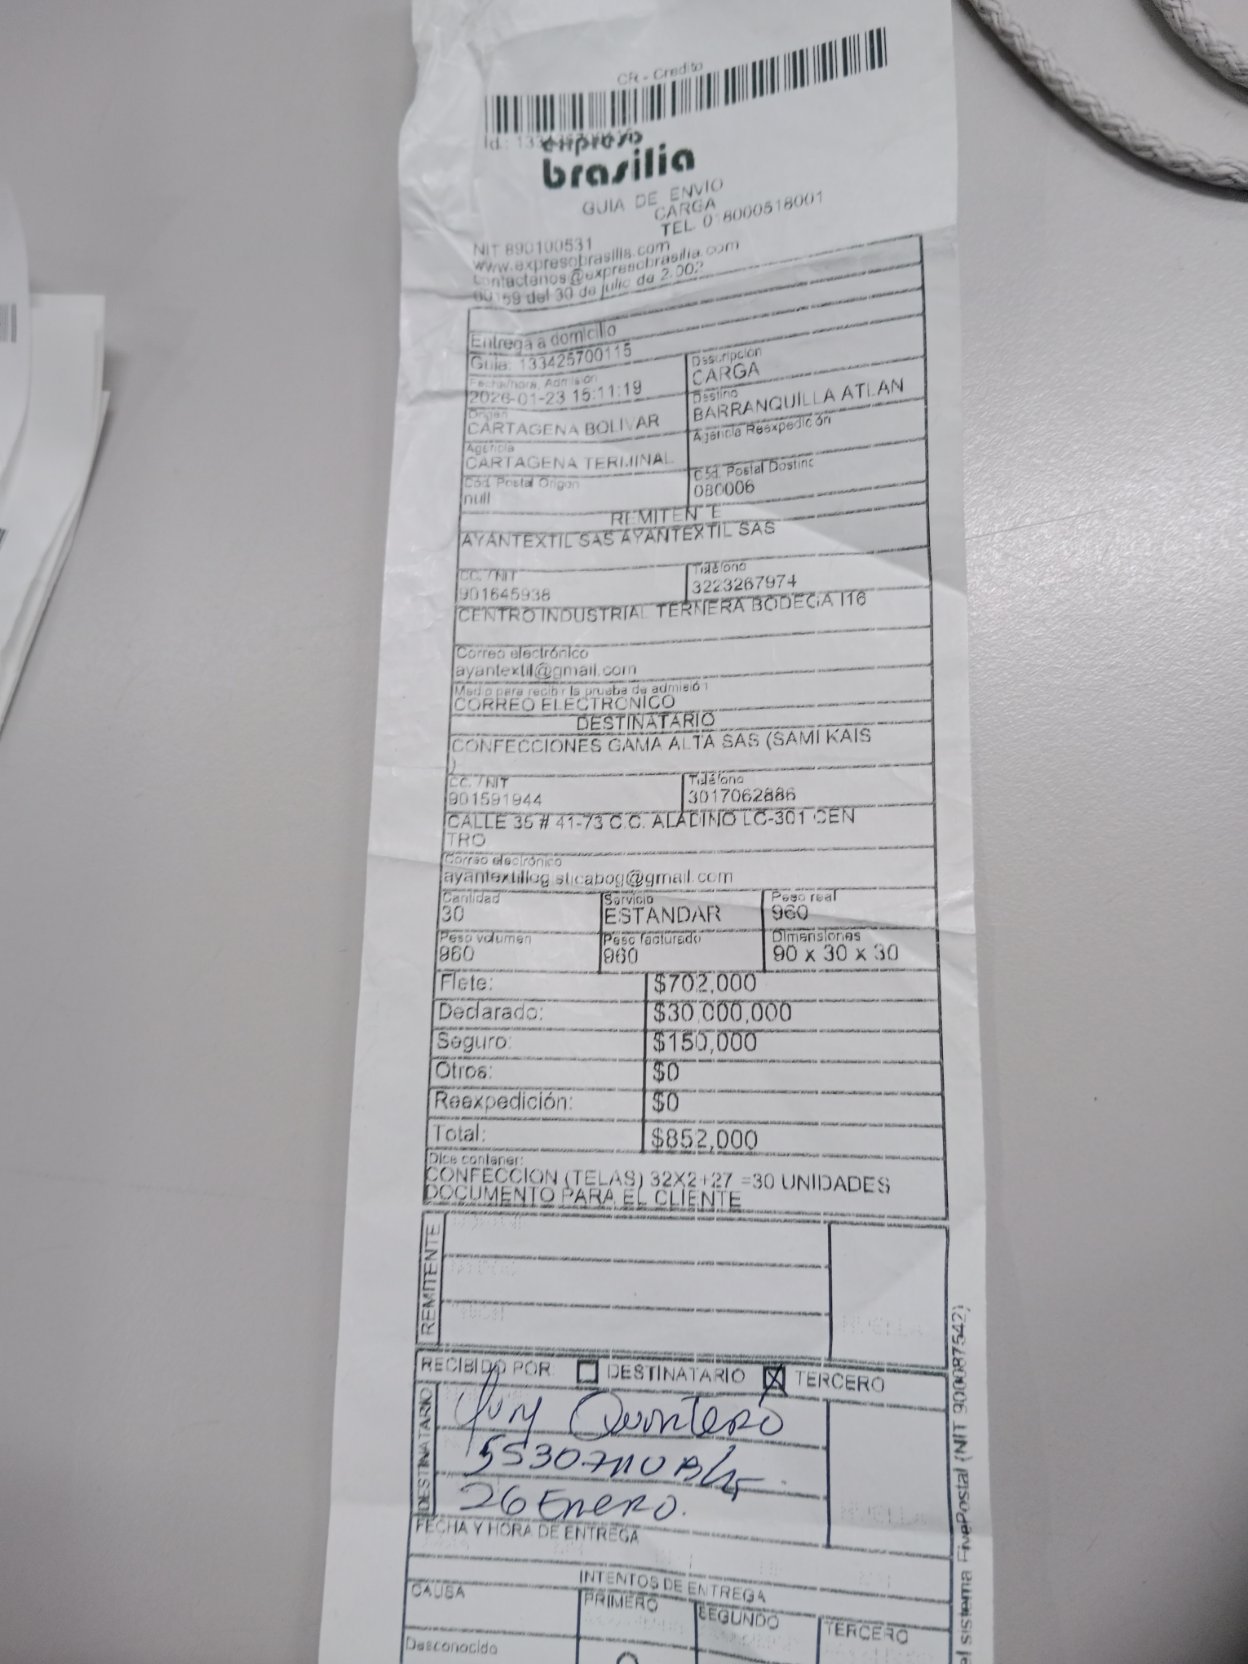 CR - Credito
Id.:
expreso
brasilia
GUIA DE ENVIO
CARGA
TEL. 018000518001
NIT 890100531
www.expresobrasilia.com
contactenos@expresobrasilia.com
00159 del 30 de julio de 2.002
Entrega a domicilio
Guia: 133425700115
Descripción
CARGA
Fecha/hora, Admisión
2026-01-23 15:11:19
Destino
BARRANQUILLA ATLAN
Origen
CARTAGENA BOLIVAR
Agencia Reexpedición
Agencia
CARTAGENA TERMINAL
Cód. Postal Destino
080006
Cód. Postal Origen
null
REMITENTE
AYANTEXTIL SAS AYANTEXTIL SAS
CC. / NIT
901645938
Teléfono
3223267974
CENTRO INDUSTRIAL TERNERA BODEGA I16
Correo electrónico
ayantextil@gmail.com
Medio para recibir la prueba de admisión
CORREO ELECTRONICO
DESTINATARIO
CONFECCIONES GAMA ALTA SAS (SAMI KAIS
)
CC. / NIT
901591944
Teléfono
3017062886
CALLE 35 # 41-73 C.C. ALADINO LC-301 CEN
TRO
Correo electrónico
ayantextillogisticabog@gmail.com
Cantidad
30
Servicio
ESTANDAR
Peso real
960
Peso volumen
960
Peso facturado
960
Dimensiones
90 x 30 x 30
Flete: $702,000
Declarado: $30,000,000
Seguro: $150,000
Otros: $0
Reexpedición: $0
Total: $852,000
Dice contener:
CONFECCION (TELAS) 32X2+27 =30 UNIDADES
DOCUMENTO PARA EL CLIENTE
REMITENTE
RECIBIDO POR: DESTINATARIO TERCERO
DESTINATARIO
Yury Quintero
26 Enero.
FECHA Y HORA DE ENTREGA
INTENTOS DE ENTREGA
CAUSA PRIMERO SEGUNDO TERCERO
Desconocido
el sistema FivePostal (NIT 900087542)